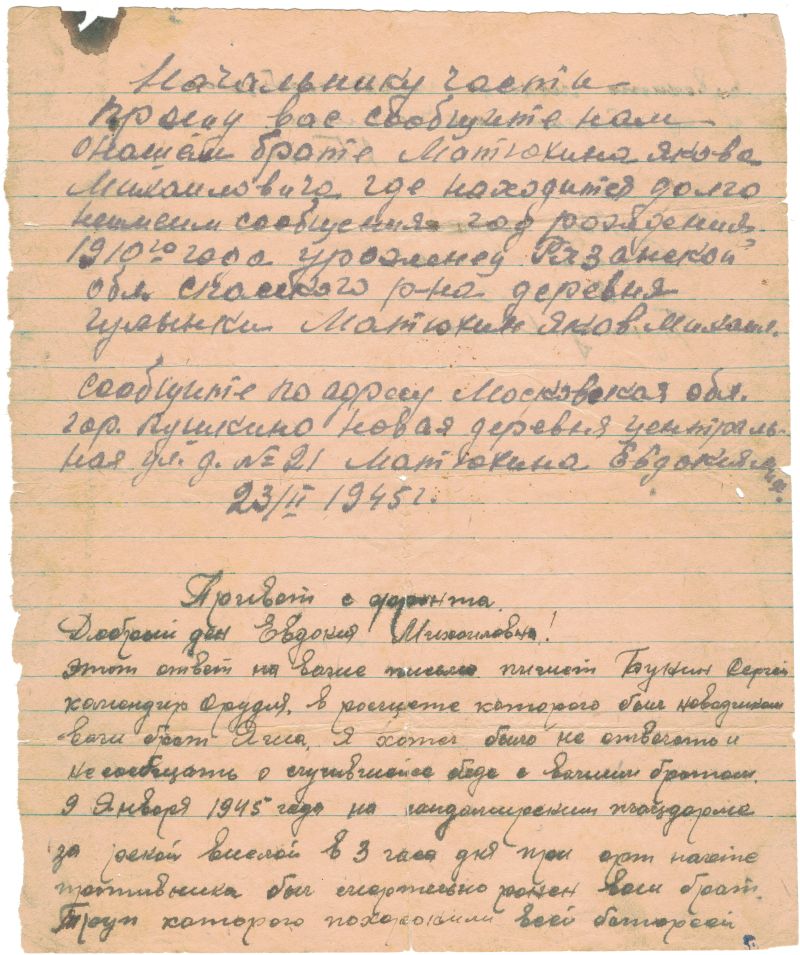 Начальнику части
Прошу вас сообщите нам
о нашем брате Матюхина Якова
Михаиловича где находится долго
неимеим сообщения год рождения
1910го года уроженец Рязанской
обл. Спаского р-на деревня
Гулынки Матюхин Яков Михаил.
сообщите по адресу Московская обл.
гор. Пушкино Новая деревня Централь-
ная ул. д. №21 Матюхина Евдокия
Мих.
23/II 1945 г.
Привет с фронта.
Добрый ден Евдокия Михаиловна!
этот ответ на ваше письмо пишет Букин Сергей
командир Орудия, в росщете которого был наводчиком
ваш брат Яша, Я хотел было не отвечать и
не сообщать о случившейсе беде с вашим братом.
9 Января 1945 года на сандамирском плацдарме
за рекой вислой в 3 часа дня при арт налете
противника был смертельно ранен ваш брат.
Труп которого похоронили всей батареей